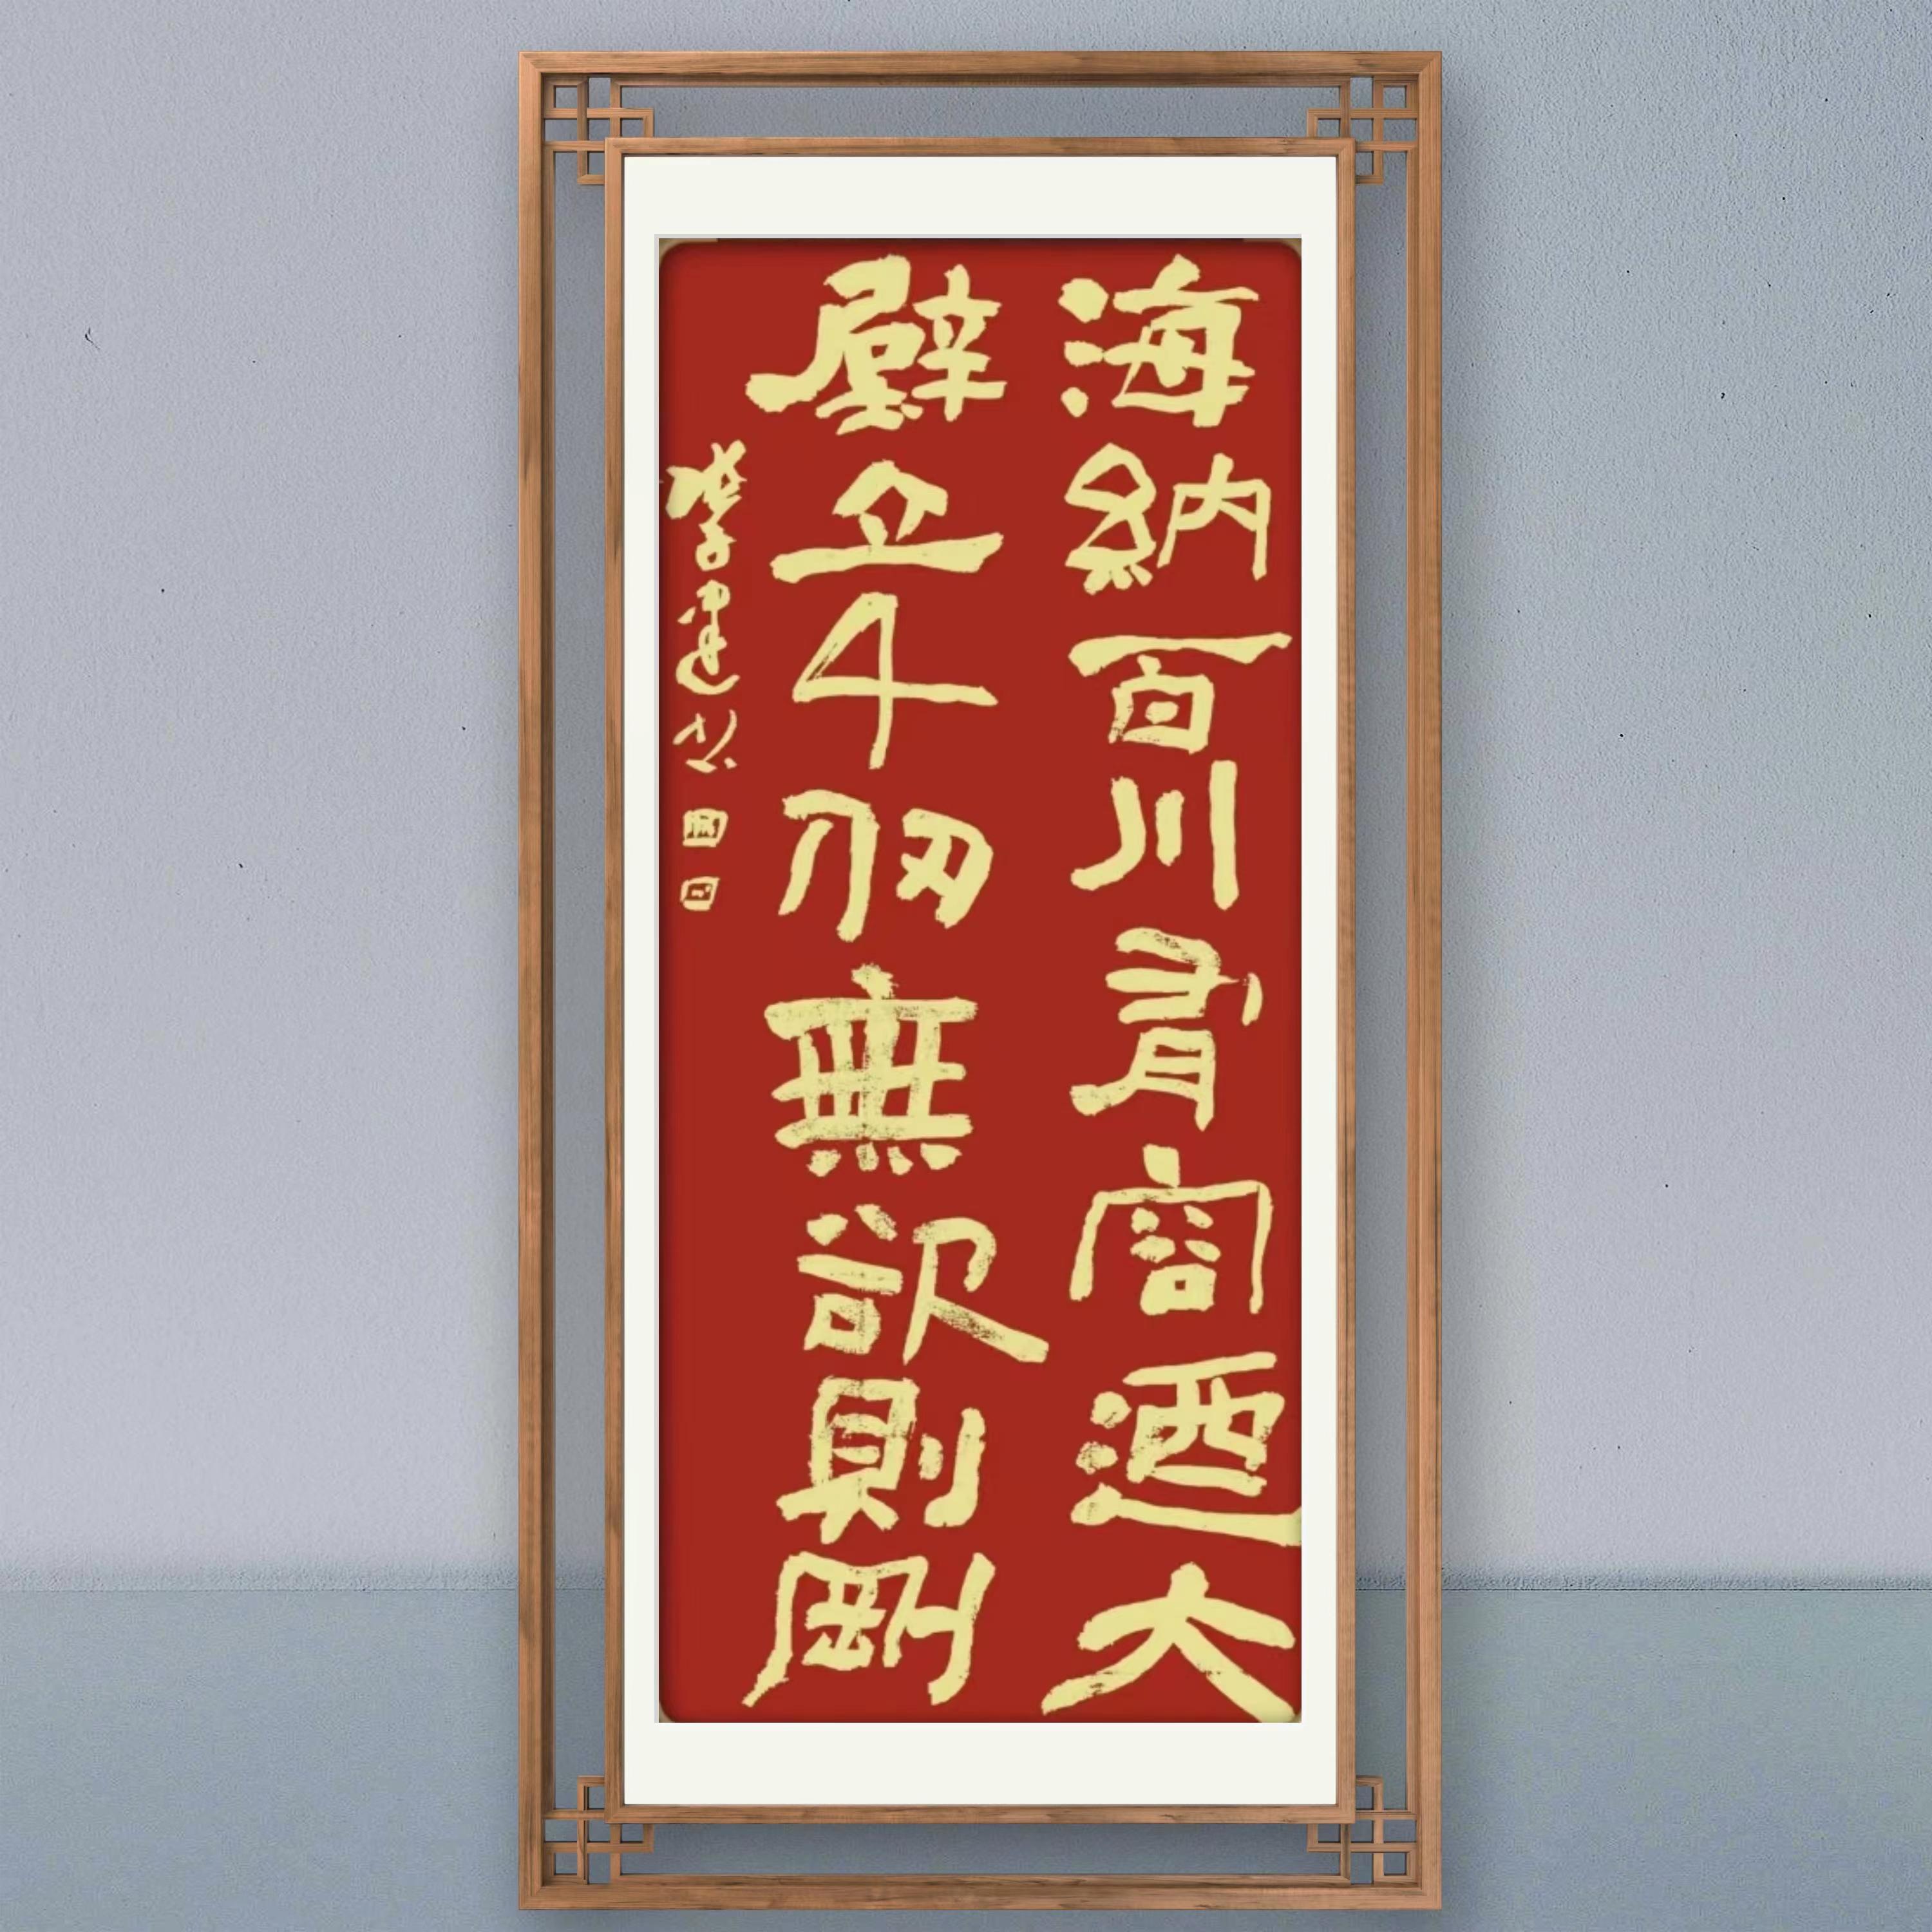 海納百川有容迺大
壁立千仞無欲則剛
建